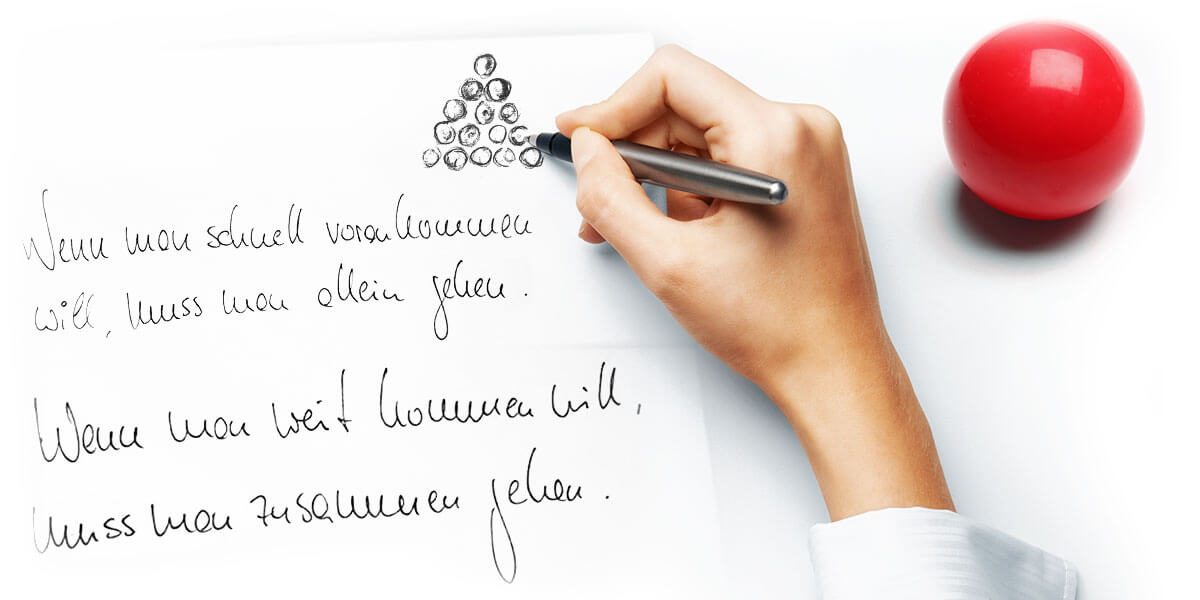 Wenn man schnell vorankommen
will, muss man allein gehen.
Wenn man weit kommen will,
muss man zusammen gehen.